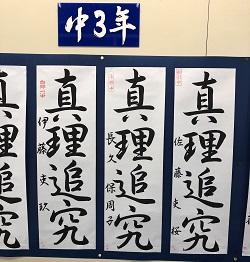 中3年
真理追究
佐藤吏桜
真理追究
長久保周子
真理追究
伊藤吏玖